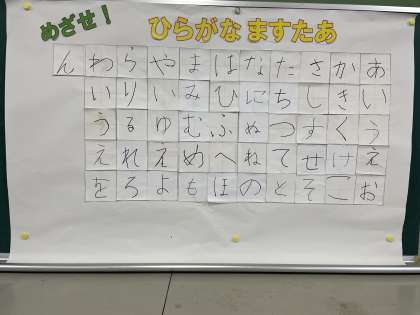 めざせ！
ひらがな ますたあ
あいうえお
かきくけこ
さしすせそ
たちつてと
なにぬねの
はひふへほ
まみむめも
やいゆえよ
らりるれろ
わいうえを
ん